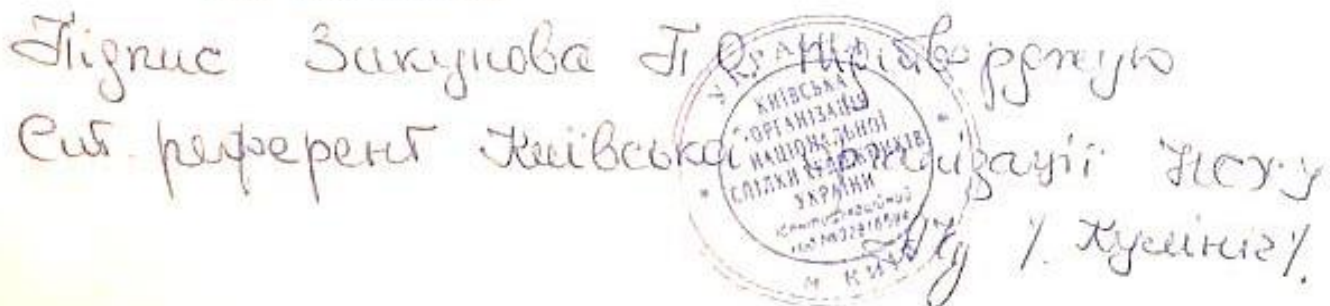 Підпис Закунова П О підтверджую
Ст. референт Київської організації НСХУ
/. Кулініч /.
УКРАЇНА
КИЇВСЬКА
ОРГАНІЗАЦІЯ
НАЦІОНАЛЬНОЇ
СПІЛКИ ХУДОЖНИКІВ
УКРАЇНИ
м КИЇВ